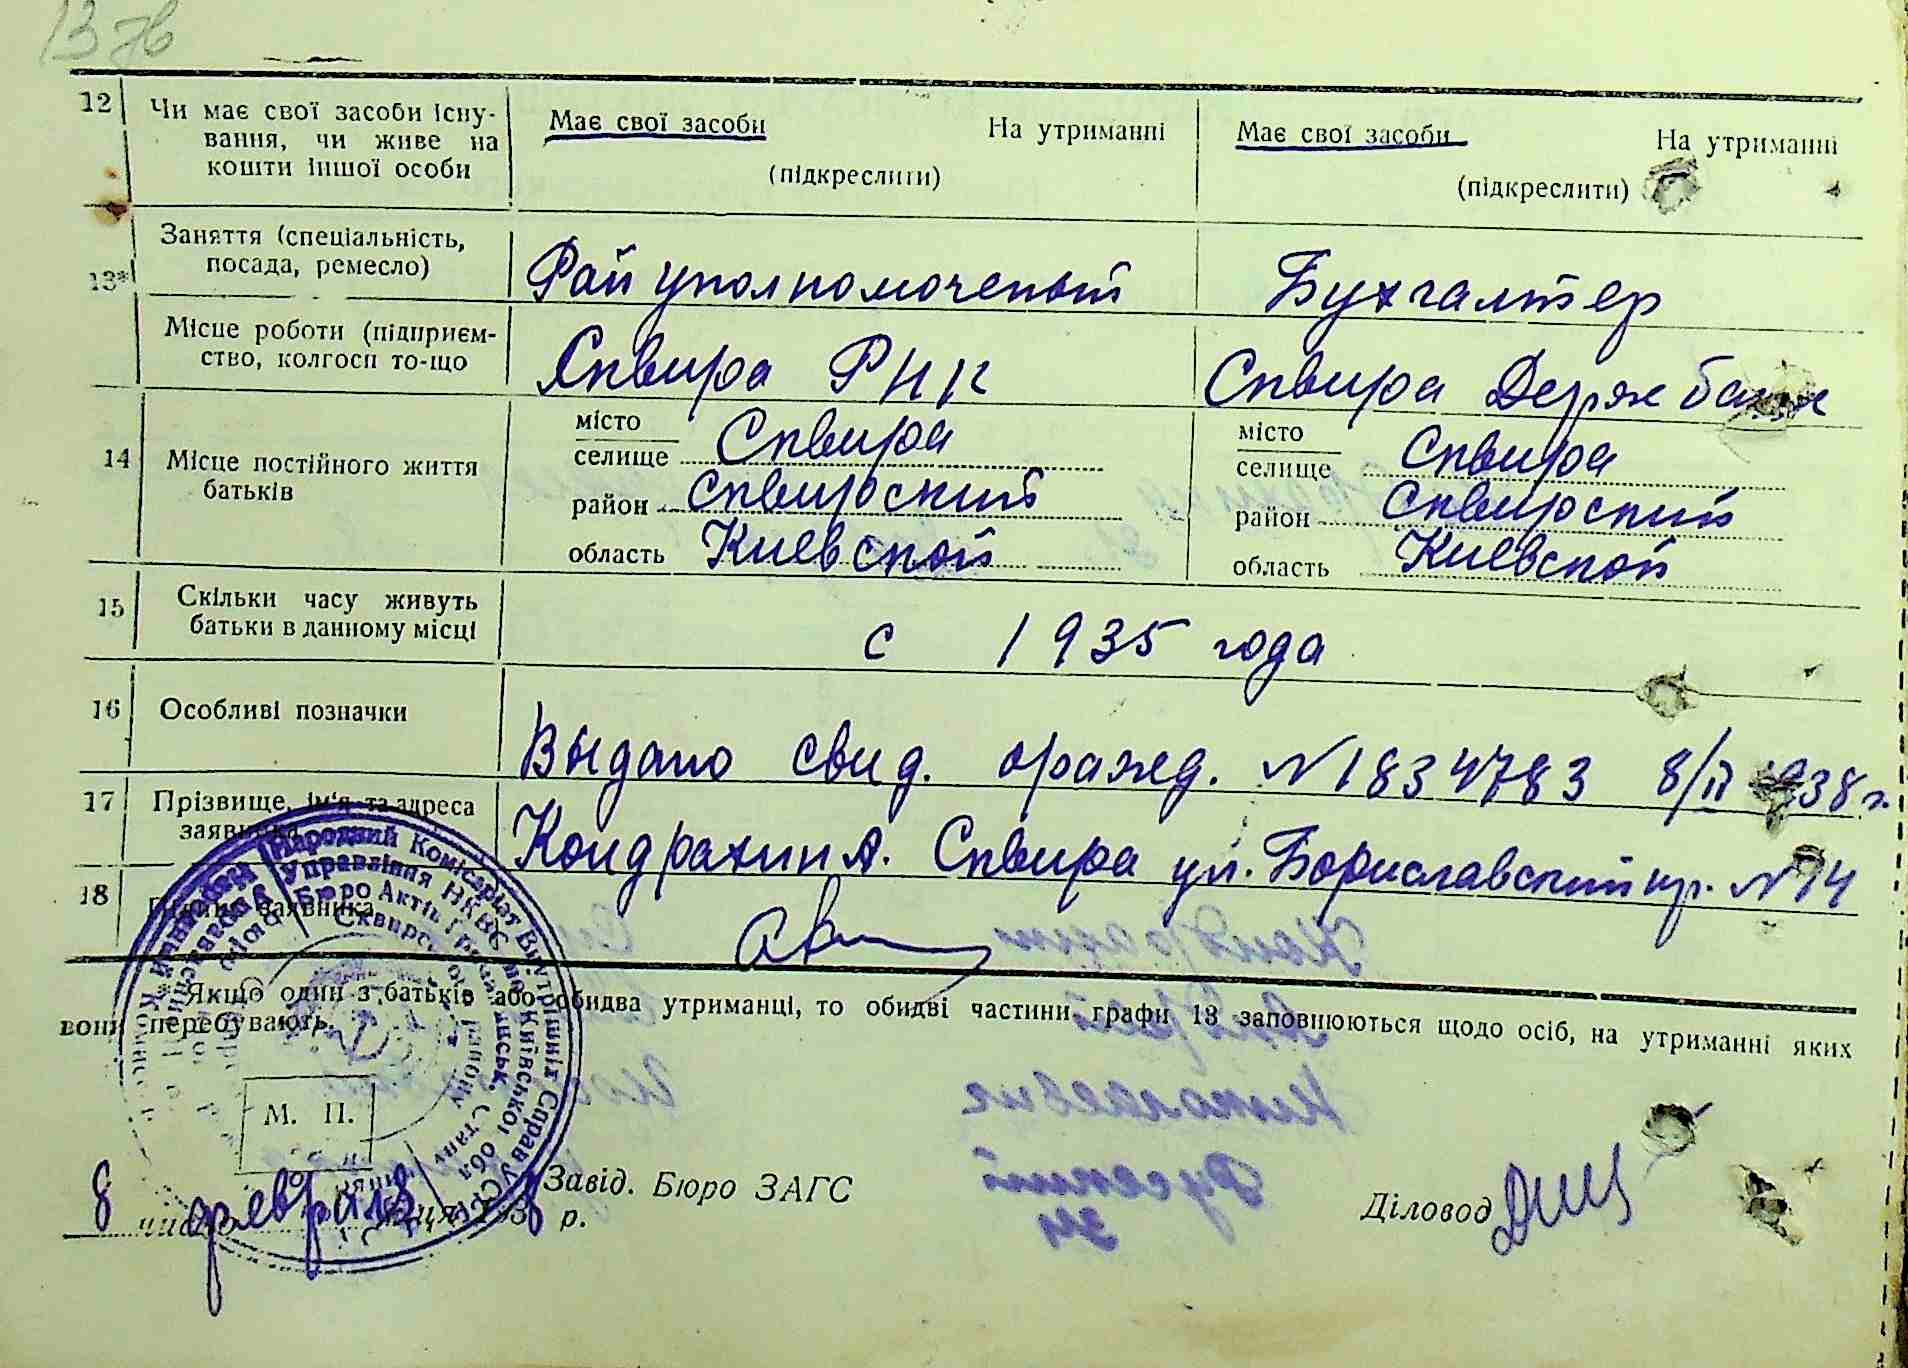 12 Чи має свої засоби існу-
вання, чи живе на
кошти іншої особи
Має свої засоби На утриманні
(підкреслити)
Має свої засоби На утриманні
(підкреслити)
13* Заняття (спеціальність,
посада, ремесло)
Рай уполномоченый
Бухгалтер
Місце роботи (підприєм-
ство, колгосп то-що
Сквира РИК
Сквира Держбанк
14 Місце постійного життя
батьків
місто
селище Сквира
район Сквирский
область Киевской
місто
селище Сквира
район Сквирский
область Киевской
15 Скільки часу живуть
батьки в данному місці
с 1935 года
16 Особливі позначки
Выдано свид. о ражд. №1834783 8/II 1938 г.
17 Прізвище, ім'я та адреса
заявника
Кондрахин А. Сквира ул. Бориславский пр. №14
18 заявника
* Якщо один з батьків або обидва утриманці, то обидві частини графи 13 заповнюються щодо осіб, на утриманні яких
вони перебувають.
Народний Комісаріат Внутрішніх Справ УСРР
Управління НКВС на Київській обл.
Бюро Актів Громадянськ. Стану
Сквирського району
М. П.
8 числа февраля місяця 1938 р.
Завід. Бюро ЗАГС
Діловод